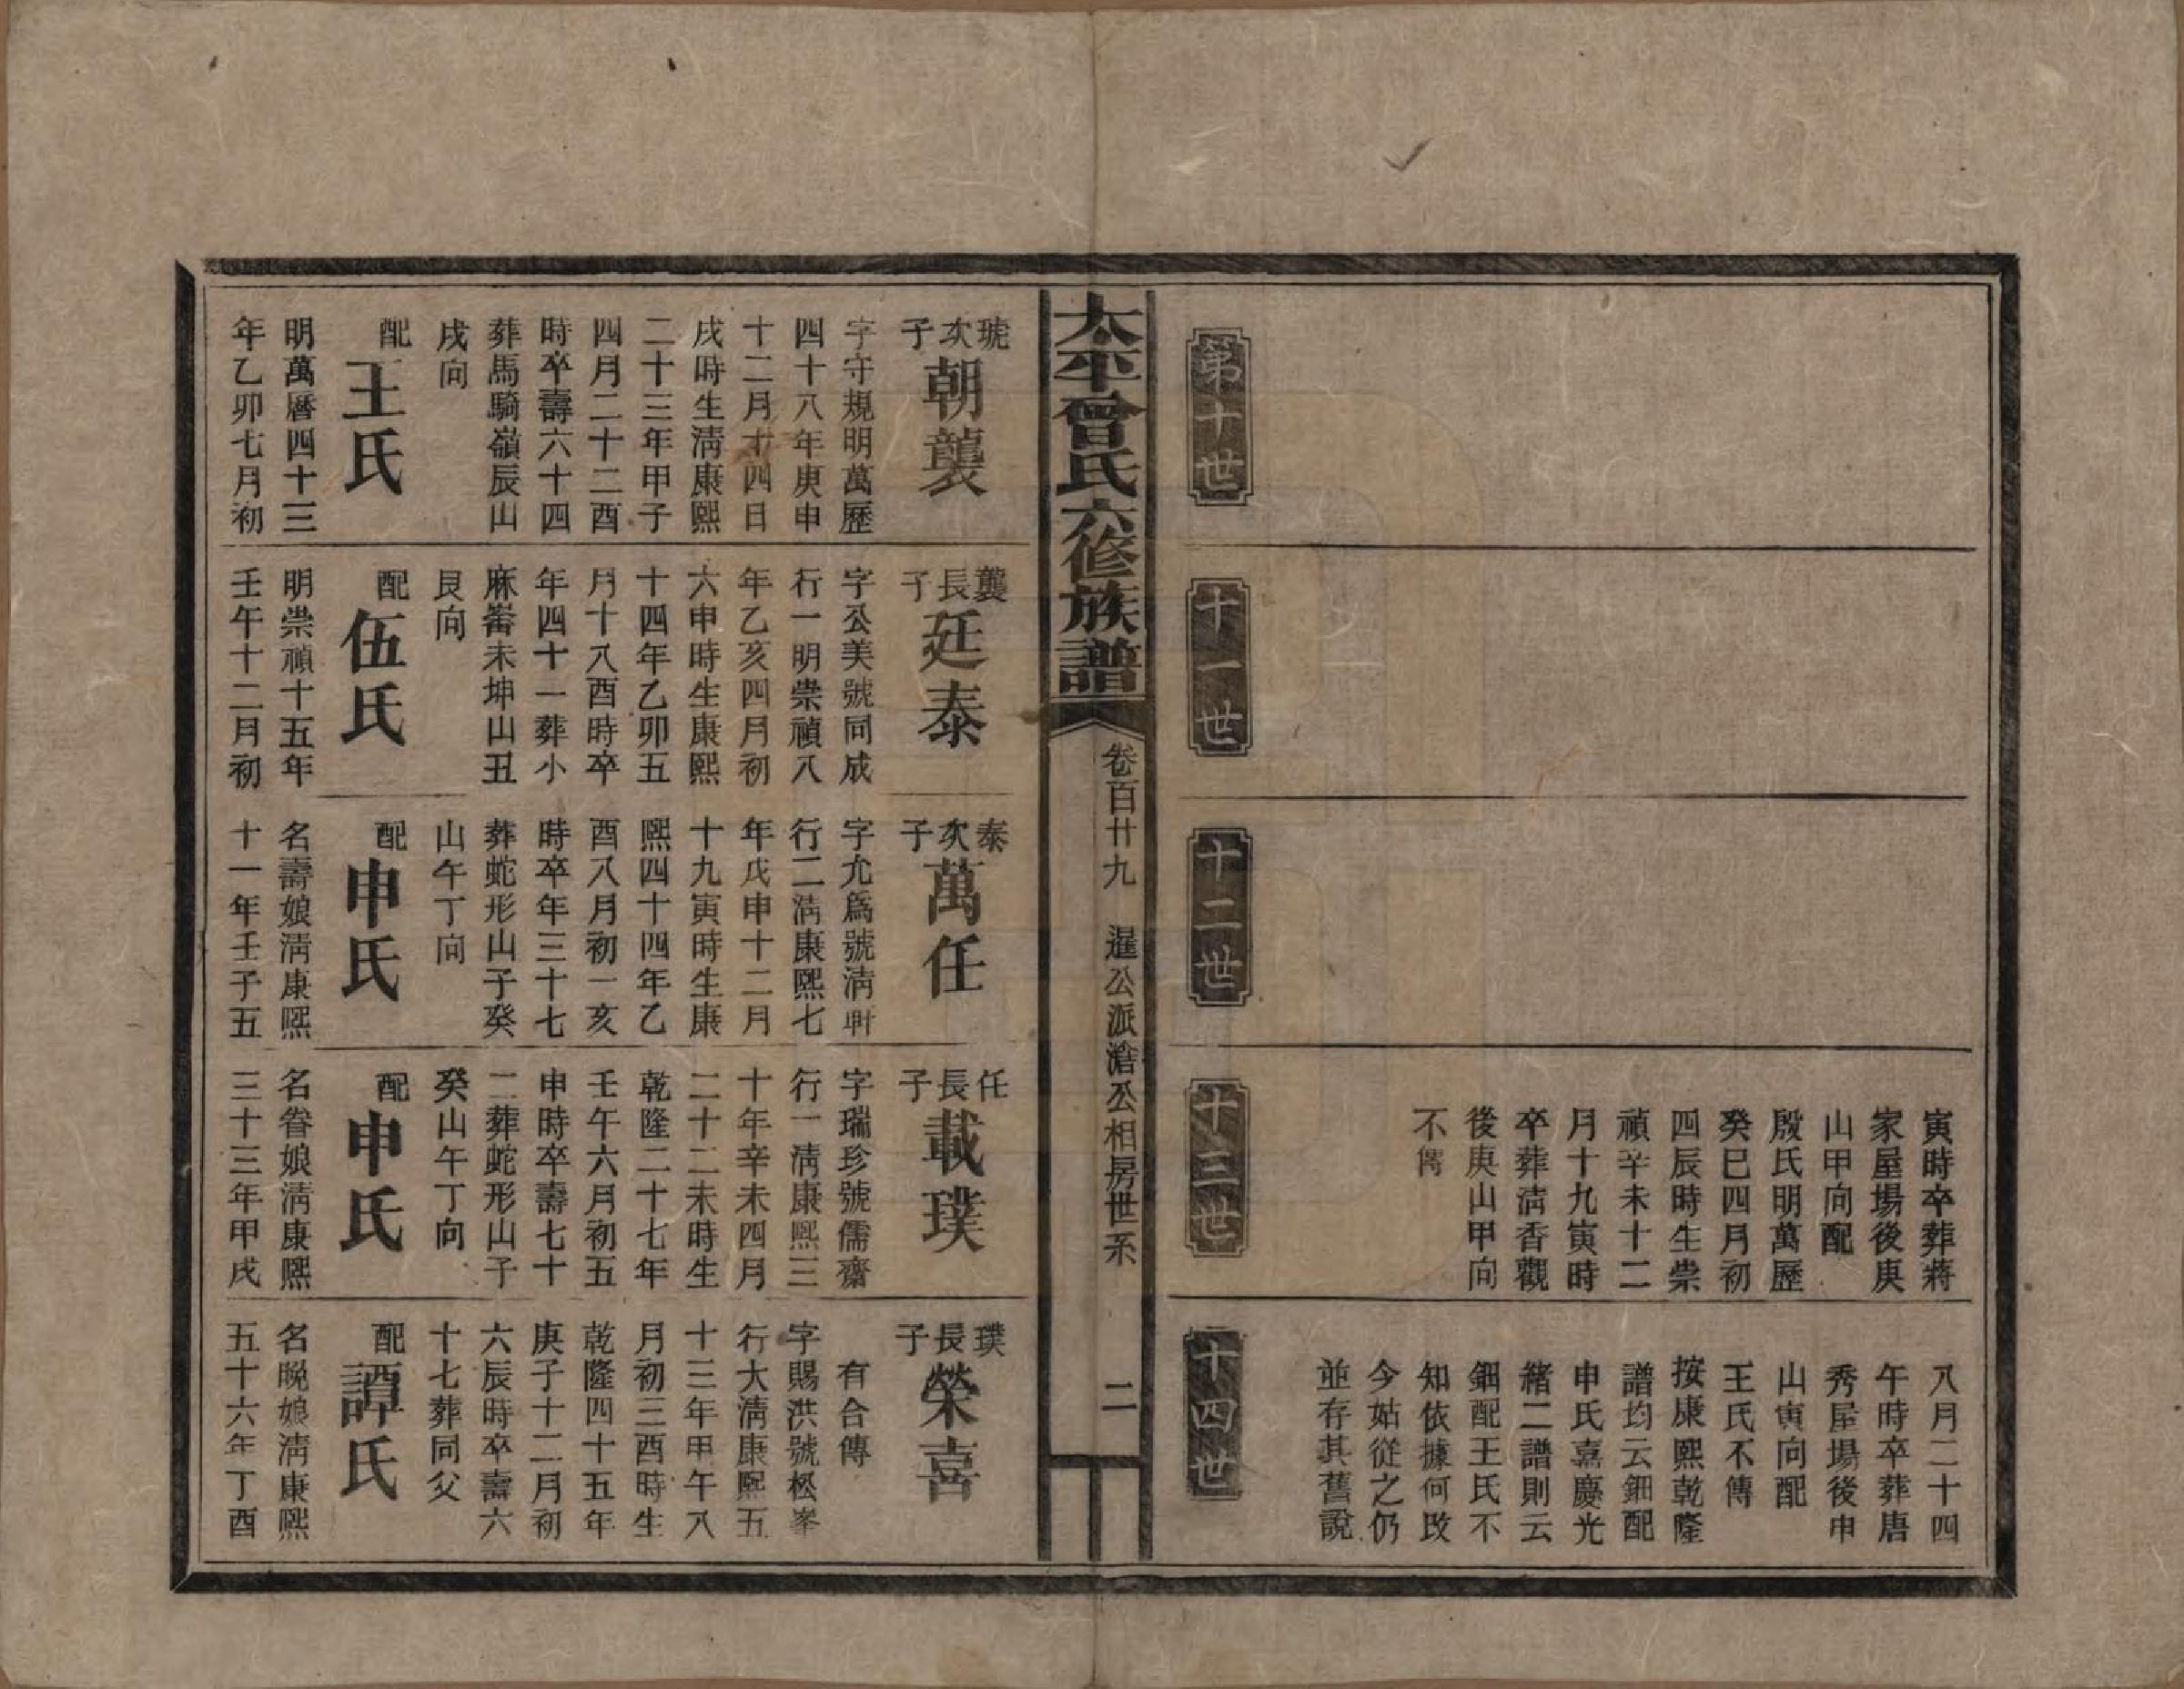 寅時卒葬蔣
家屋場後庚
山甲向配
殷氏明萬歷
癸巳四月初
四辰時生崇
禎辛未十二
月十九寅時
卒葬淸香觀
後庚山甲向
不傳
八月二十四
午時卒葬唐
秀屋場後申
山寅向配
王氏不傳
按康熙乾隆
譜均云鈿配
申氏嘉慶光
緒二譜則云
鈿配王氏不
知依據何攺
今姑從之仍
並存其舊說
第十世
十一世
十二世
十三世
十四世
太平曾氏六修族譜
卷百廿九
暹公派澔公相房世系
二
琥次子
朝襲
字守規明萬歷
四十八年庚申
十二月十四日
戌時生淸康熙
二十三年甲子
四月二十二酉
時卒壽六十四
葬馬騎嶺辰山
戌向
配
王氏
明萬曆四十三
年乙卯七月初
龔長子
廷泰
字公美號同成
行一明崇禎八
年乙亥四月初
六申時生康熙
十四年乙卯五
月十八酉時卒
年四十一葬小
麻崙未坤山丑
艮向
配
伍氏
明崇禎十五年
壬午十二月初
泰次子
萬任
字允爲號淸軒
行二淸康熙七
年戊申十二月
十九寅時生康
熙四十四年乙
酉八月初一亥
時卒年三十七
葬蛇形山子癸
山午丁向
配
申氏
名壽娘淸康熙
十一年壬子五
任長子
載璞
字瑞珍號儒齋
行一淸康熙三
十年辛未四月
二十二未時生
乾隆二十七年
壬午六月初五
申時卒壽七十
二葬蛇形山子
癸山午丁向
配
申氏
名眷娘淸康熙
三十三年甲戌
璞長子
榮喜
有合傳
字賜洪號松峯
行大淸康熙五
十三年甲午八
月初三酉時生
乾隆四十五年
庚子十二月初
六辰時卒壽六
十七葬同父
配
譚氏
名晚娘淸康熙
五十六年丁酉